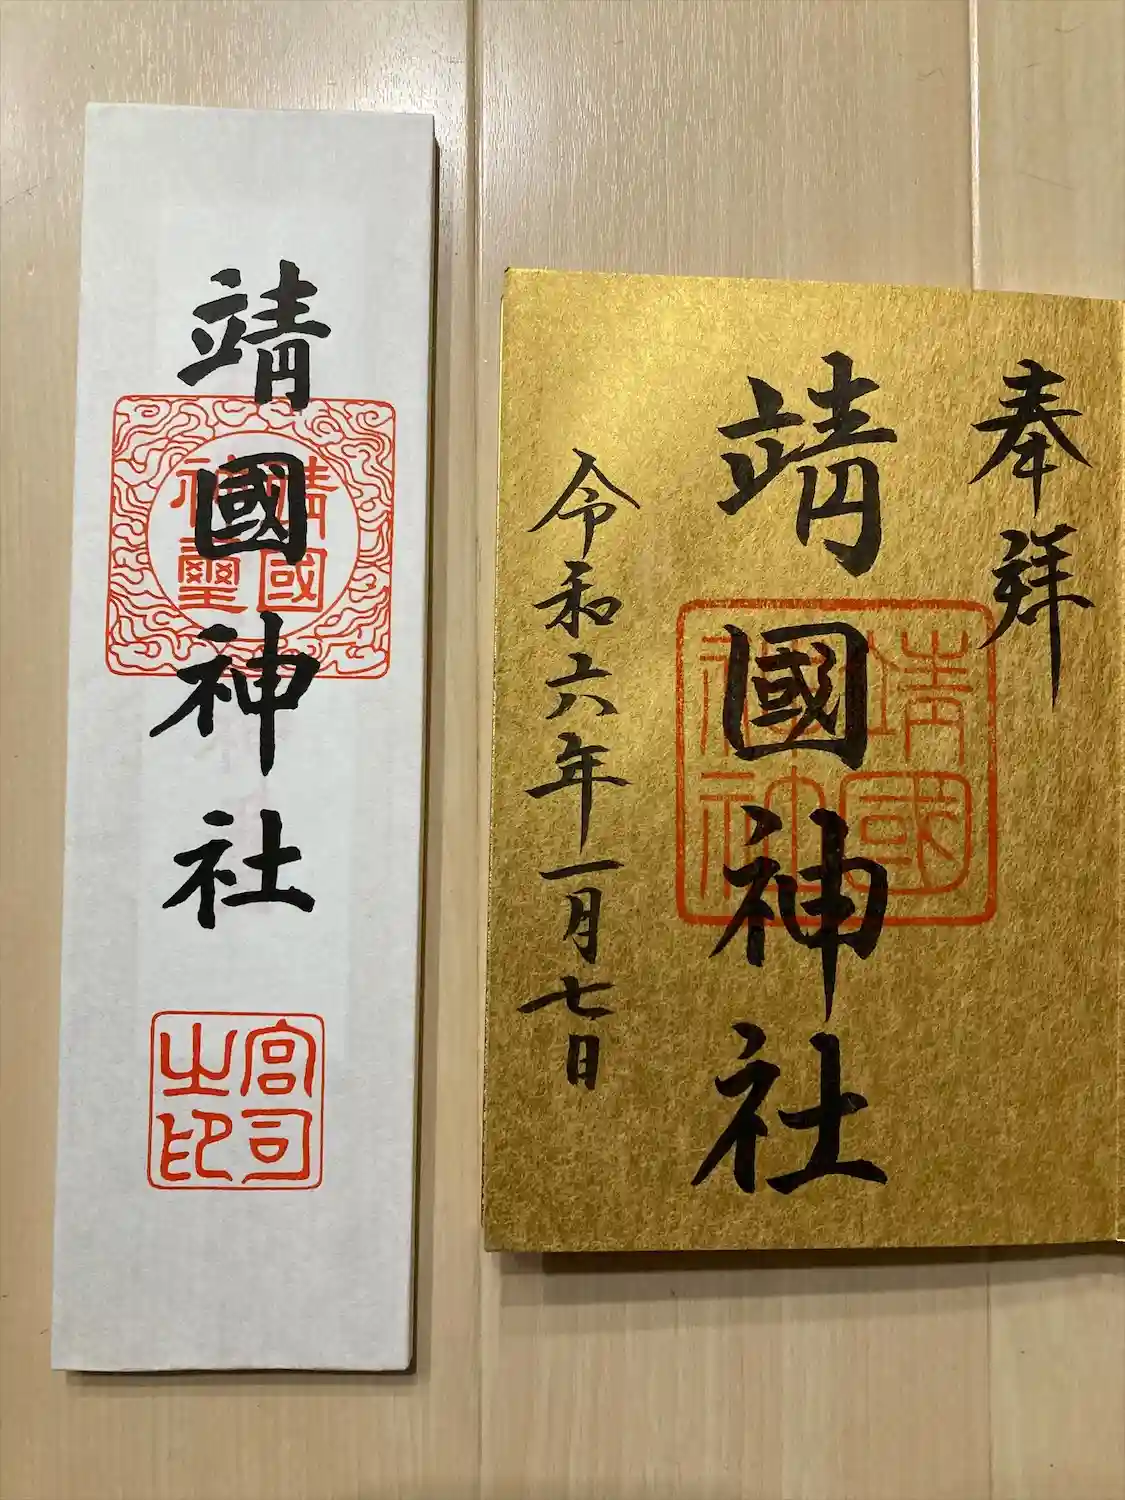 靖國神社
靖國
神璽
宮司
之印
奉拜
靖國神社
靖國
令和六年一月七日